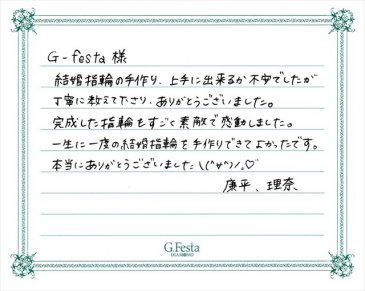 G-festa 様
結婚指輪の手作り、上手に出来るか不安でしたが
丁寧に教えて下さり、ありがとうございました。
完成した指輪もすごく素敵で感動しました。
一生に一度の結婚指輪を手作りできてよかったです。
本当にありがとうございました\(^▽^)/♡
廉平、理奈
G.Festa
DIAMOND